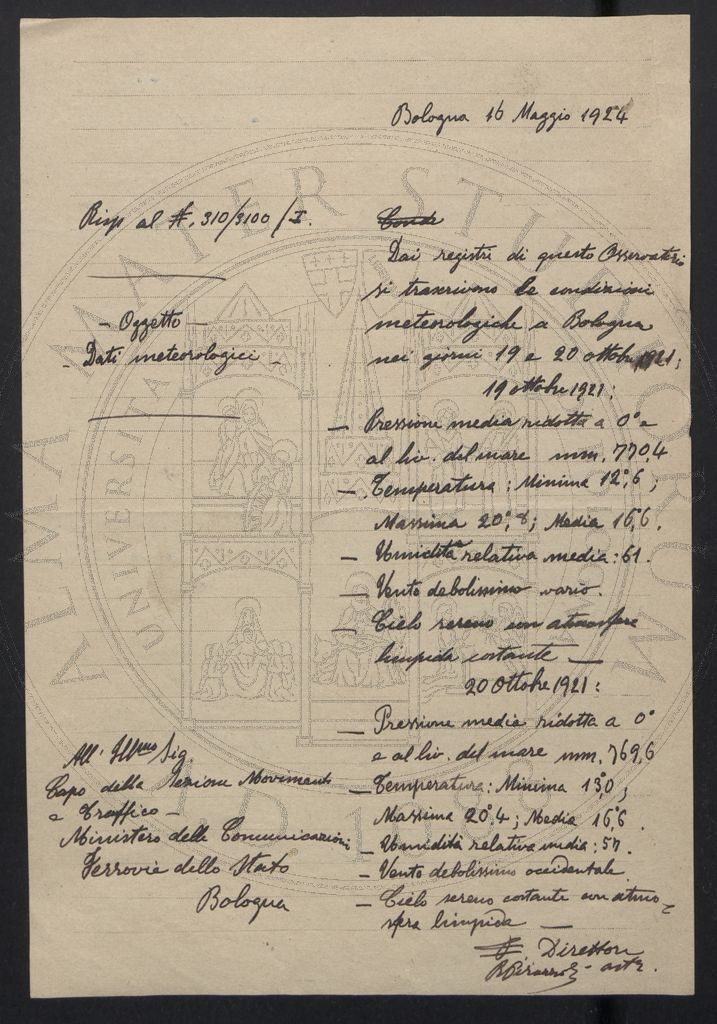 Bologna 16 Maggio 1924
Risp al N. 310/3100/I.
Oggetto
Dati meteorologici
Dai registri di questo Osservatorio
si trascrivono le condizioni
meteorologiche a Bologna
nei giorni 19 e 20 ottobre 1921;
19 ottobre 1921:
— Pressione media ridotta a 0° e
al liv. del mare mm. 770,4
— Temperatura: Minima 12°,6;
Massima 20°,8; Media 16°,6.
— Umidità relativa media: 61.
— Vento debolissimo vario.
— Cielo sereno con atmosfera
limpida costante —
20 Ottobre 1921:
— Pressione media ridotta a 0°
e al liv. del mare mm. 769,6
— Temperatura: Minima 13°,0;
Massima 20°,4; Media 16°,6.
— Umidità relativa media: 57.
— Vento debolissimo occidentale.
— Cielo sereno costante con atmo-
sfera limpida —
Direttore
All' Ill.mo Sig.
Capo della Sezione Movimento
e Traffico —
Ministero delle Comunicazioni
Ferrovie dello Stato
Bologna
ALMA MATER STUDIORUM
UNIVERSITA
A.D. 1088